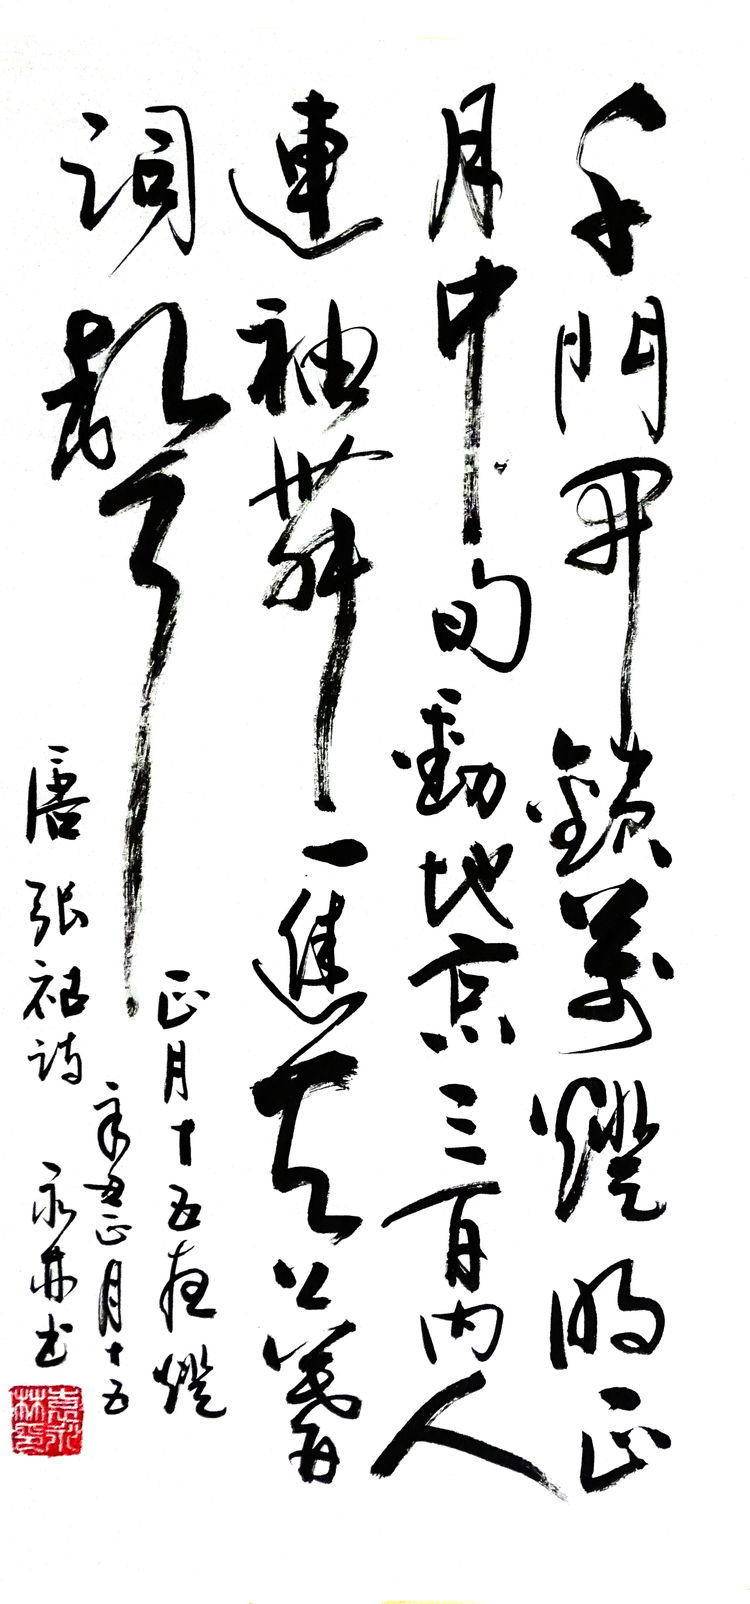 千門開鎖萬燈明正
月中旬動地京三百内人
連袖舞一進天上著
詞聲
正月十五夜燈
辛丑正月十五
唐張祜詩 永林书
袁永林印